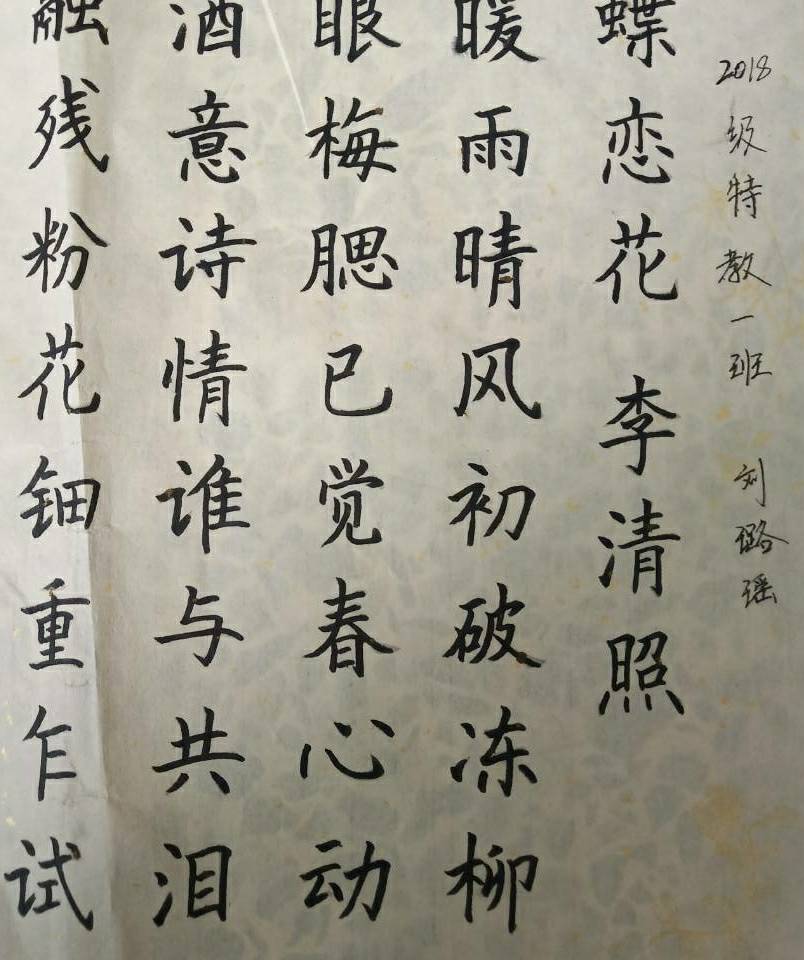 2018级特教一班 刘璐瑶
蝶恋花 李清照
暖雨晴风初破冻柳
眼梅腮已觉春心动
酒意诗情谁与共泪
融残粉花钿重乍试